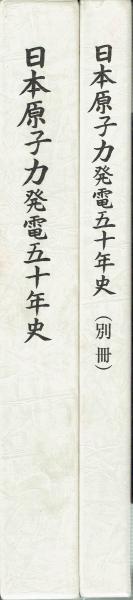 日本原子力発電五十年史
日本原子力発電五十年史（別冊）